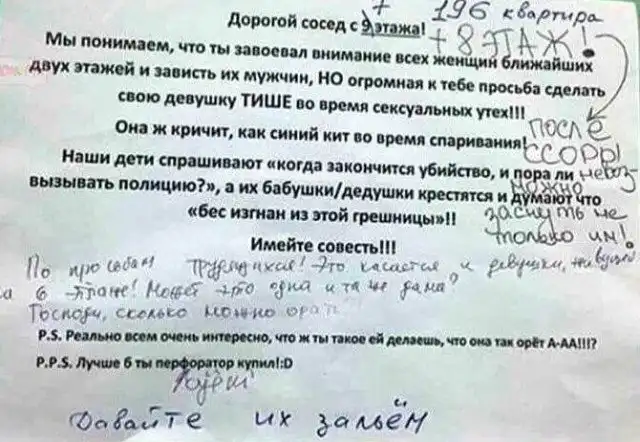 + 196 квартира
Дорогой сосед с 9 этажа!
+ 8 ЭТАЖ!
Мы понимаем, что ты завоевал внимание всех женщин ближайших
двух этажей и зависть их мужчин, НО огромная к тебе просьба сделать
свою девушку ТИШЕ во время сексуальных утех!!!
Она ж кричит, как синий кит во время спаривания!
ПОСЛЕ
ССОРР!
Наши дети спрашивают «когда закончится убийство, и пора ли
вызывать полицию?», а их бабушки/дедушки крестятся и думают что
«бес изгнан из этой грешницы»!!
невоз
можно
заснуть не
только им!
Имейте совесть!!!
По просьбам трудящихся! Это касается и девушки, живущей
на 6 этаже! Может это одна и та же дама?
Господи, сколько можно орать
P.S. Реально всем очень интересно, что ж ты такое ей делаешь, что она так орёт А-АА!!!?
P.P.S. Лучше б ты перфоратор купил!:D
Давайте их зальём